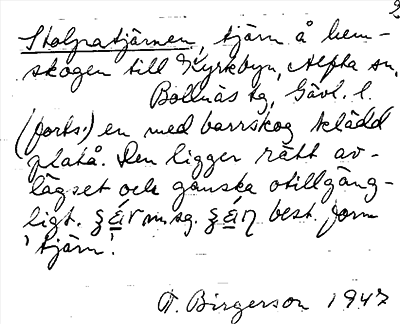 2
Stolpatjärnen, tjärn å hem-
skogen till Kyrkbyn, Alfta sn,
Bollnäs tg, Gävl. l.
(forts:) en med barrskog klädd
platå. Den ligger rätt av-
lägset och ganska otillgäng-
ligt. m sg. best. form
'tjärn'.
T. Birgerson 1947